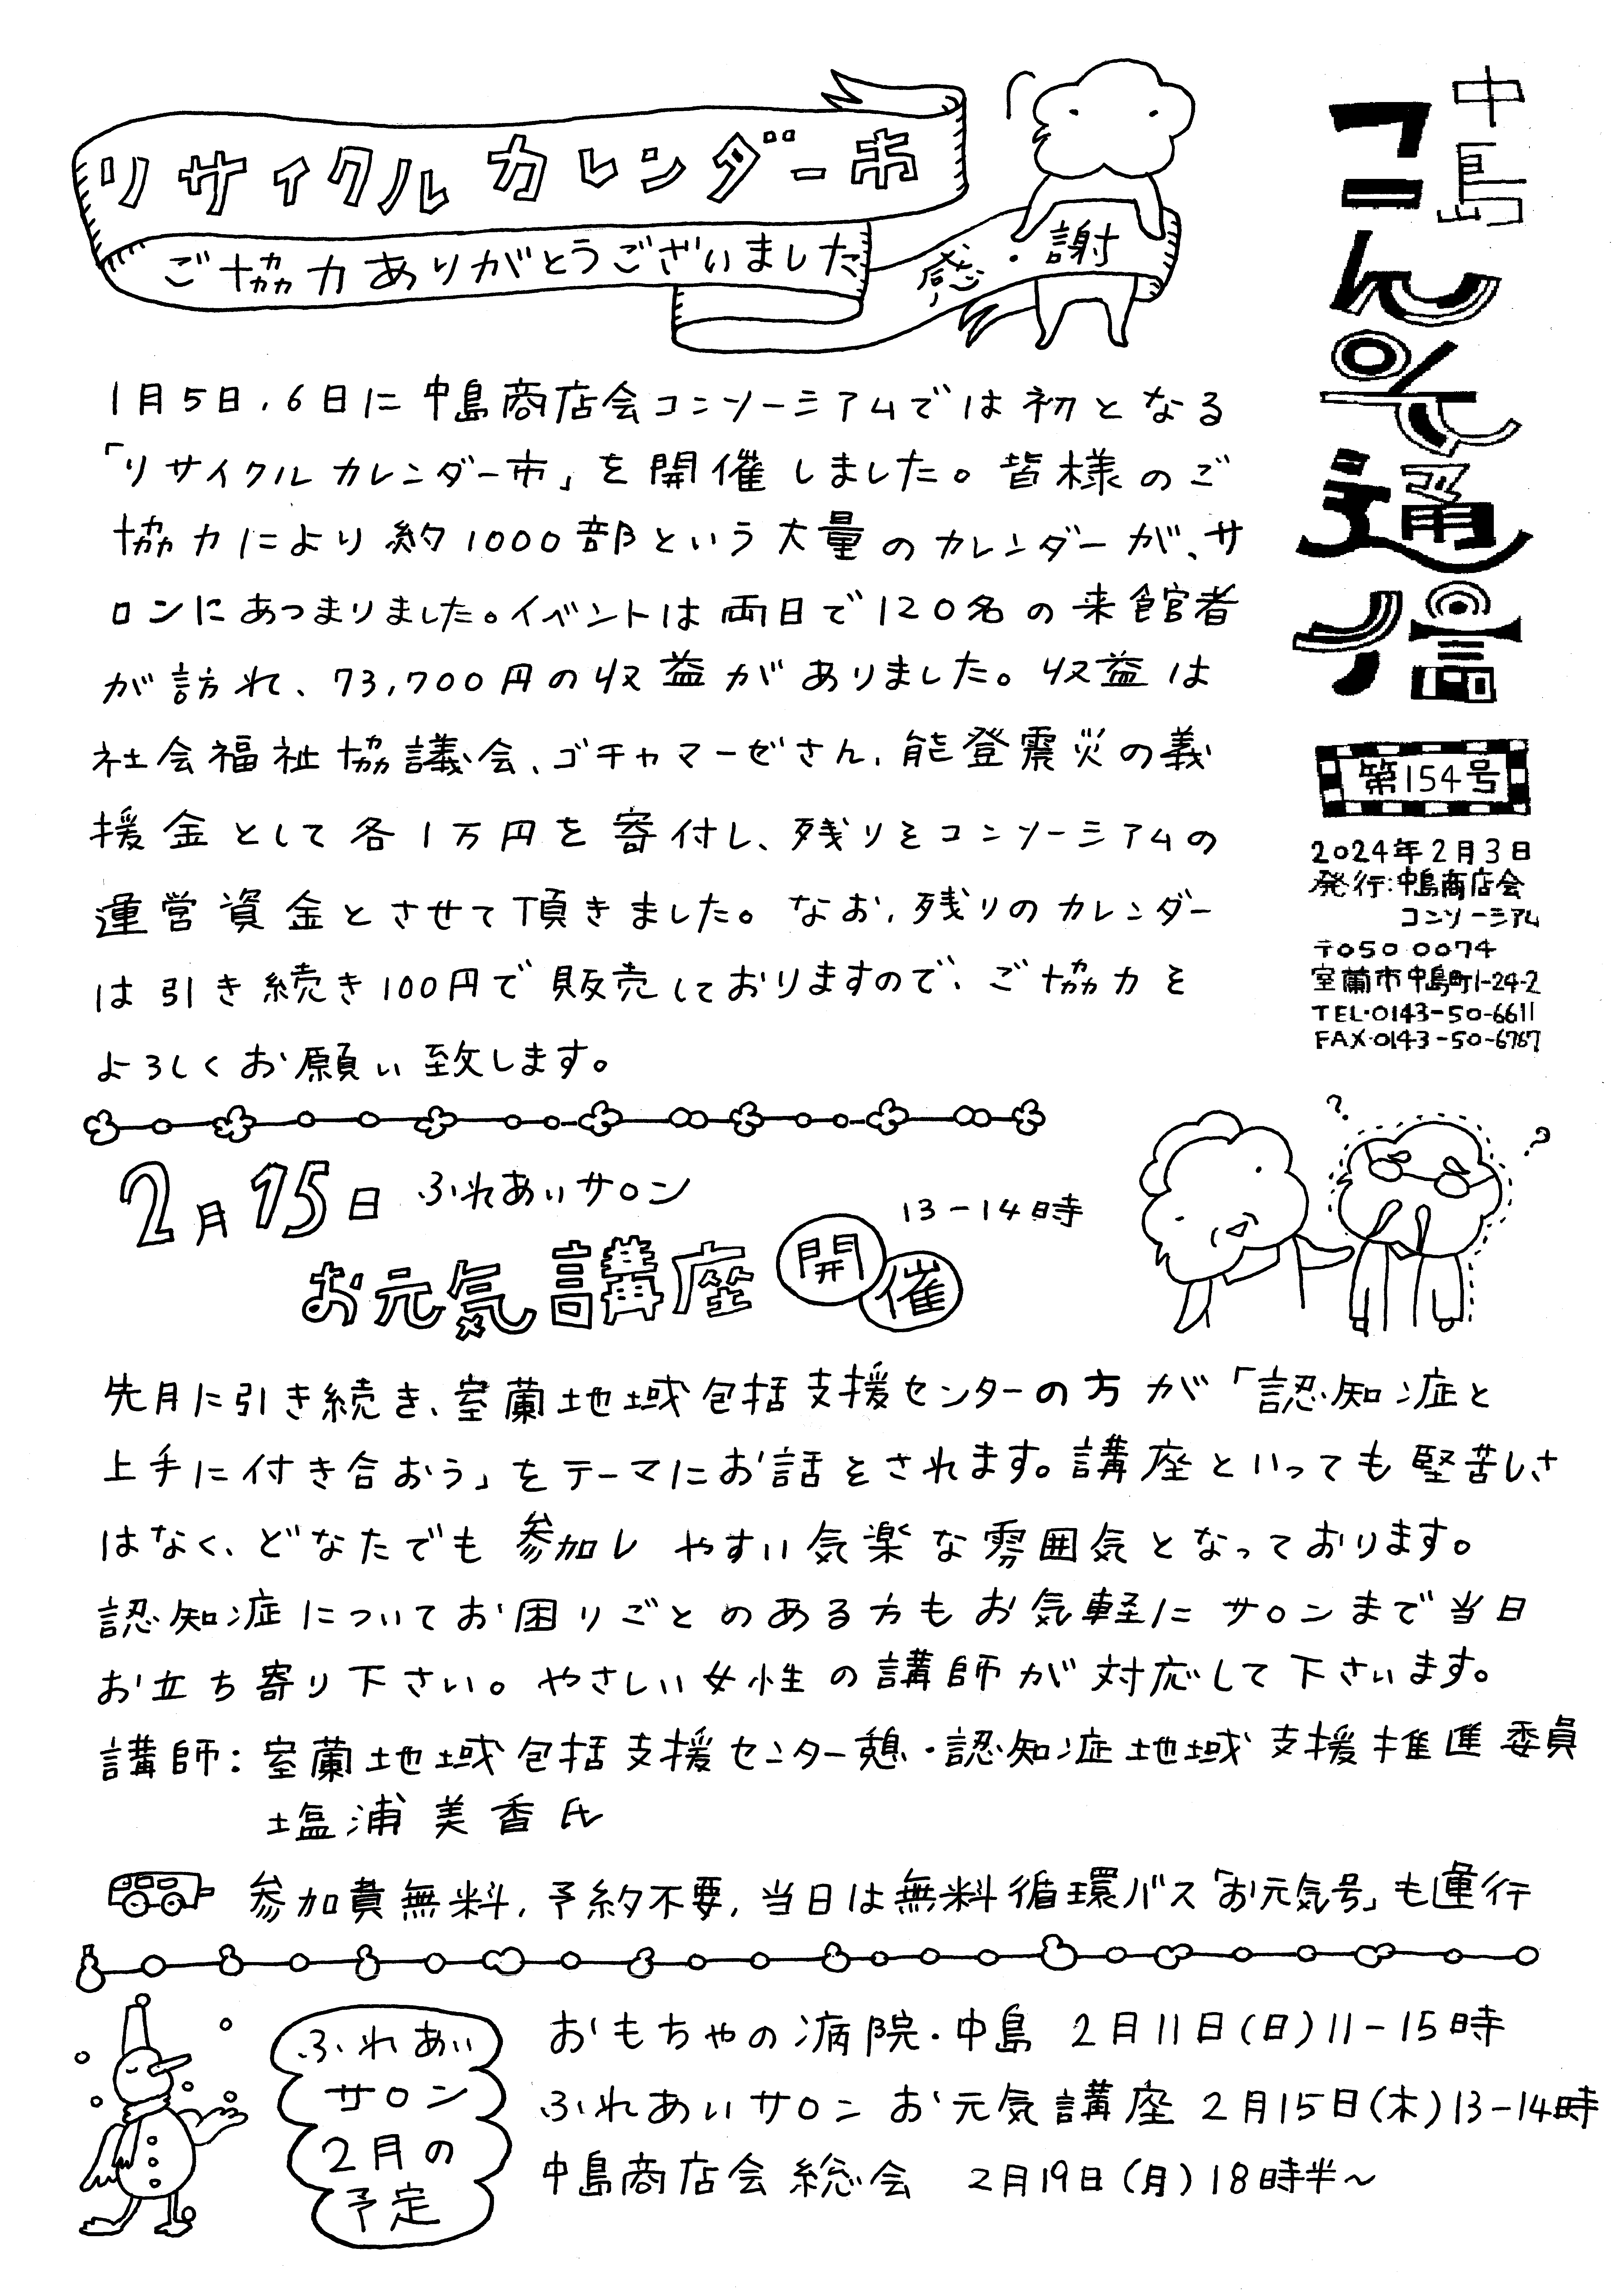 中島
コンソ通信
第154号
2024年2月3日
発行:中島商店会
コンソーシアム
〒050 0074
室蘭市中島町1-24-2
TEL・0143-50-6611
FAX・0143-50-6767
リサイクルカレンダー市
ご協力ありがとうございました
感・謝
1月5日、6日に中島商店会コンソーシアムでは初となる
「リサイクルカレンダー市」を開催しました。皆様のご
協力により約1000部という大量のカレンダーが、サ
ロンにあつまりました。イベントは両日で120名の来館者
が訪れ、73,700円の収益がありました。収益は
社会福祉協議会、ゴチャマーゼさん、能登震災の義
援金として各1万円を寄付し、残りをコンソーシアムの
運営資金とさせて頂きました。なお、残りのカレンダー
は引き続き100円で販売しておりますので、ご協力を
よろしくお願い致します。
2月15日 ふれあいサロン
13-14時
お元気講座 開催
先月に引き続き、室蘭地域包括支援センターの方が「認知症と
上手に付き合おう」をテーマにお話をされます。講座といっても堅苦しさ
はなく、どなたでも参加しやすい気楽な雰囲気となっております。
認知症についてお困りごとのある方もお気軽にサロンまで当日
お立ち寄り下さい。やさしい女性の講師が対応して下さいます。
講師:室蘭地域包括支援センター憩・認知症地域支援推進委員
塩浦美香氏
参加費無料、予約不要、当日は無料循環バス「お元気号」も運行
ふれあい
サロン
2月の
予定
おもちゃの病院・中島 2月11日(日)11-15時
ふれあいサロン お元気講座 2月15日(木)13-14時
中島商店会総会 2月19日(月)18時半～